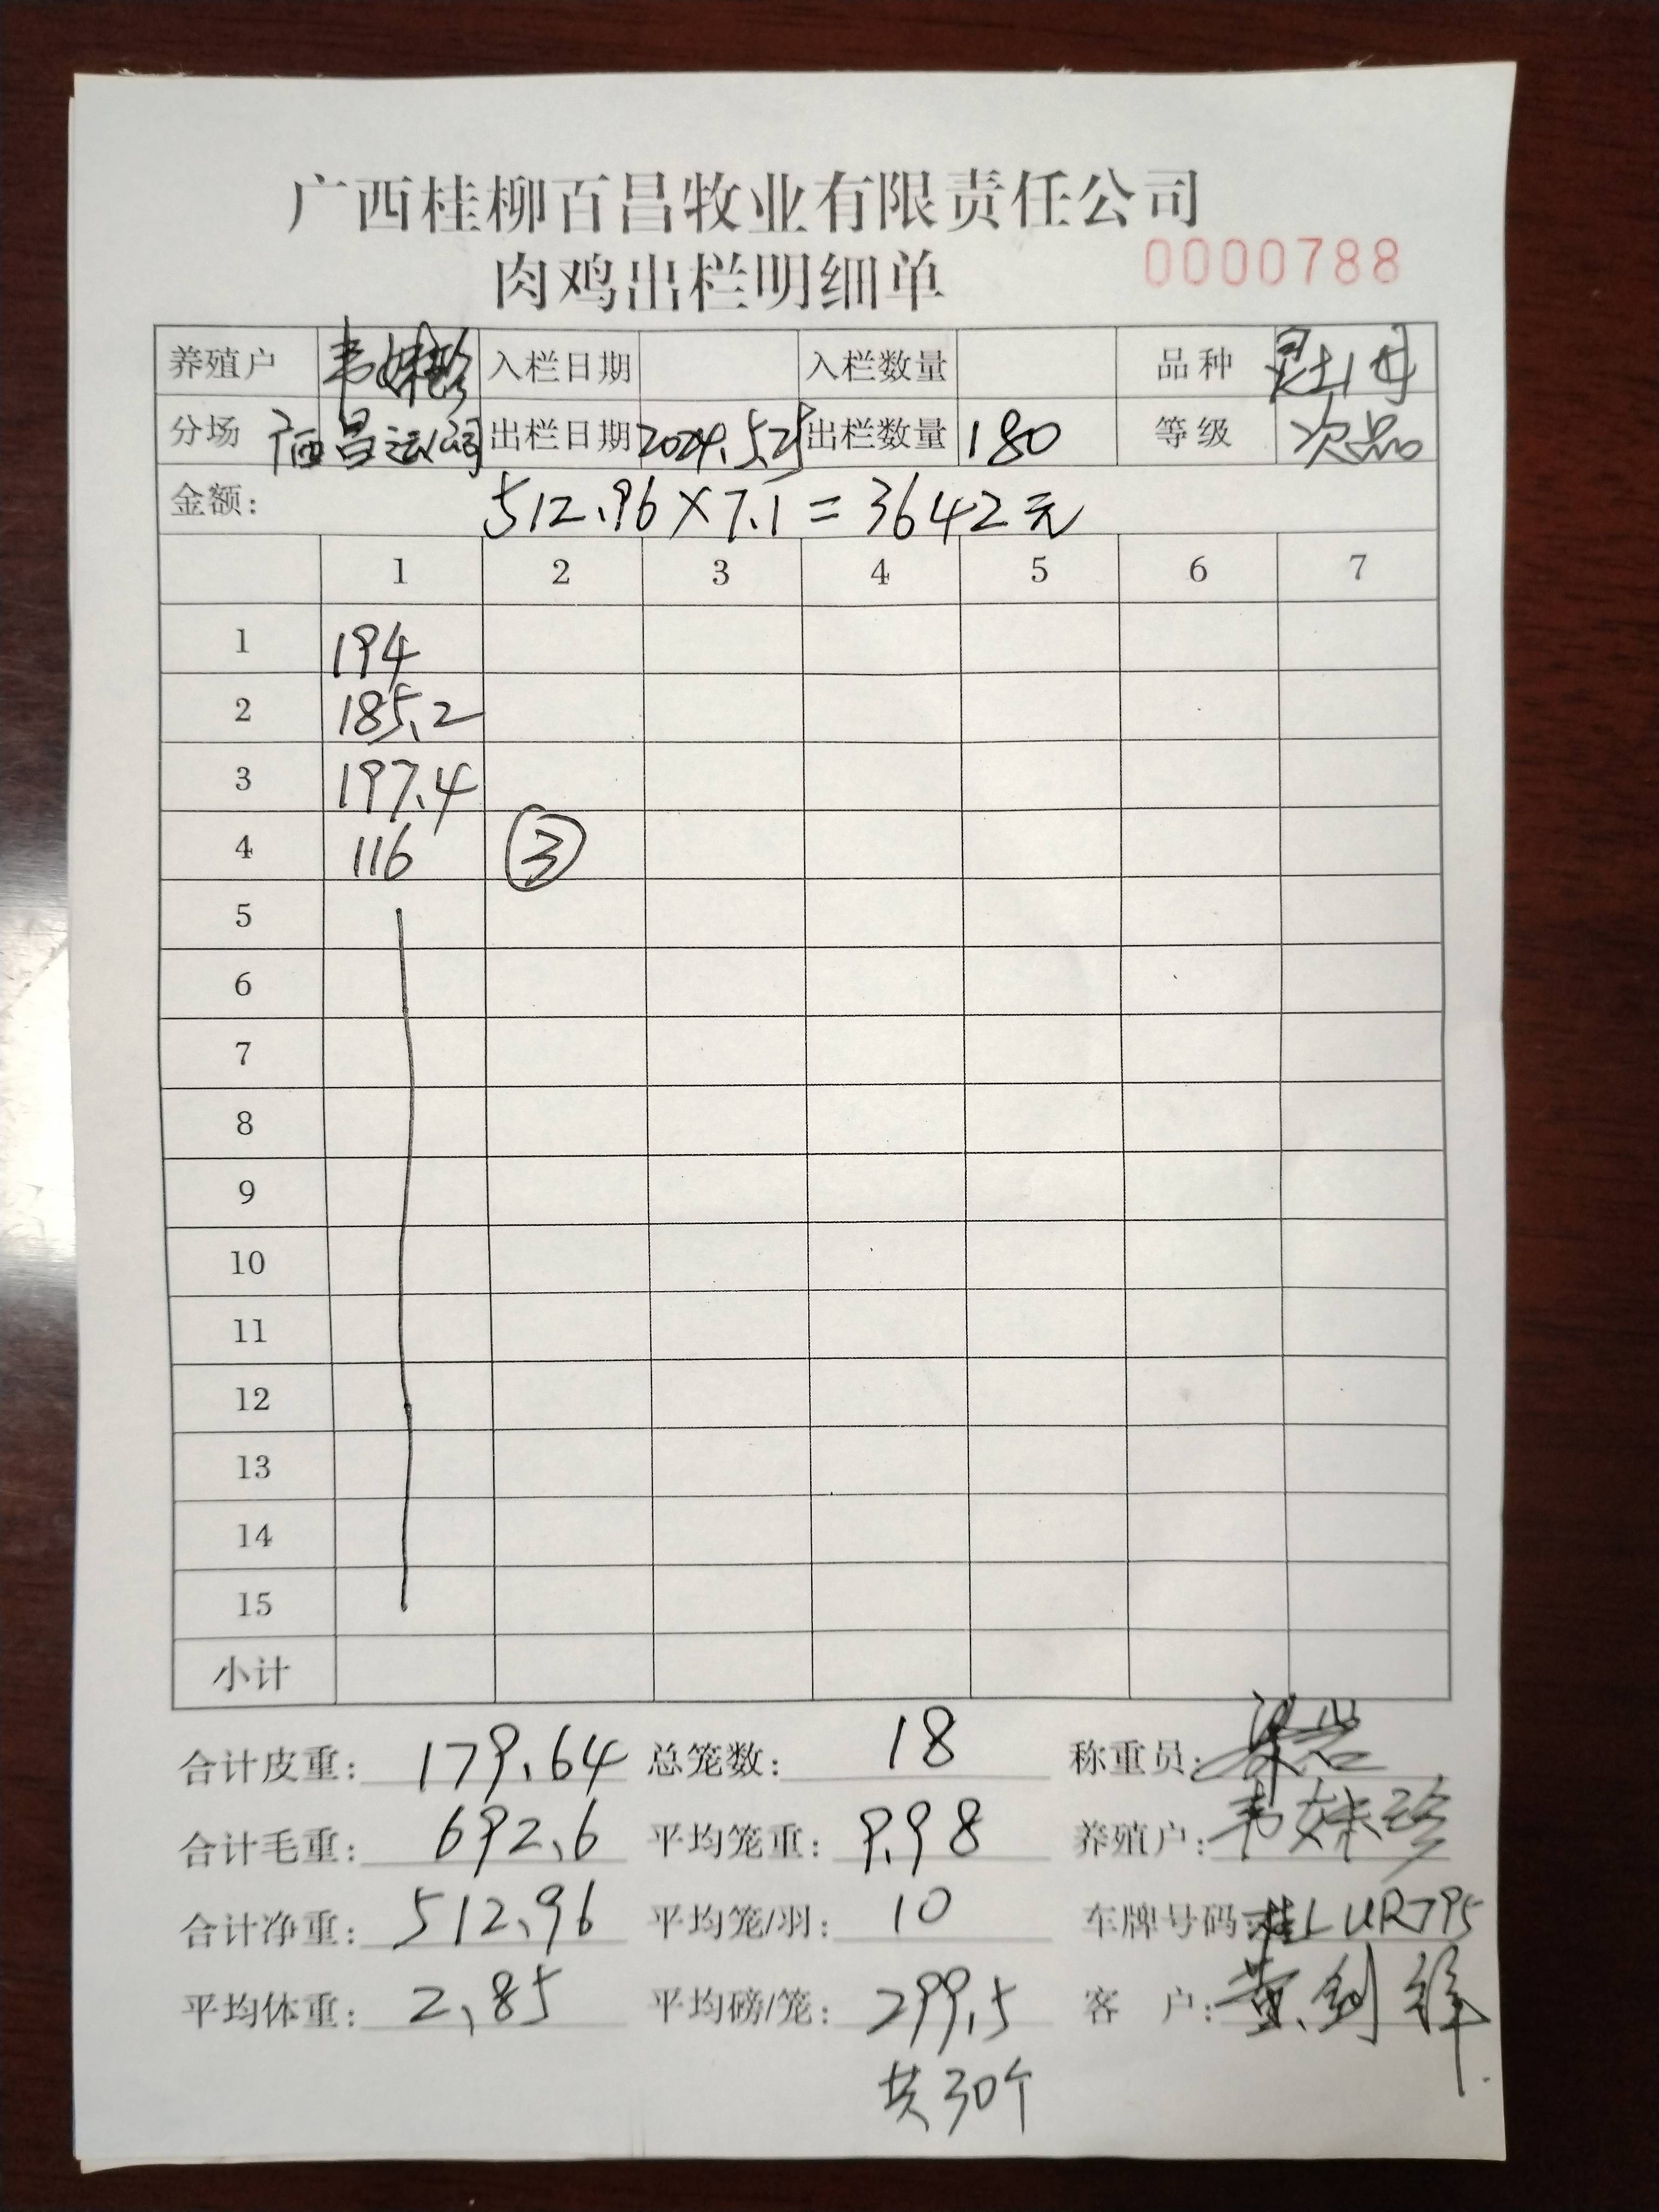 广西桂柳百昌牧业有限责任公司
肉鸡出栏明细单 0000788
养殖户 韦妹珍 入栏日期 入栏数量 品种
分场 广西昌运公司 出栏日期 2024.5.25 出栏数量 180 等级 次品
金额: 512.96×7.1=3642元
1 2 3 4 5 6 7
1 194
2 185.2
3 197.4
4 116 ③
5
6
7
8
9
10
11
12
13
14
15
小计
合计皮重: 179.64 总笼数: 18 称重员:
合计毛重: 692.6 平均笼重: 9.98 养殖户: 韦妹珍
合计净重: 512.96 平均笼/羽: 10 车牌号码: 桂LUR795
平均体重: 2.85 平均磅/笼: 299.5 客 户: 黄剑锋
共30个